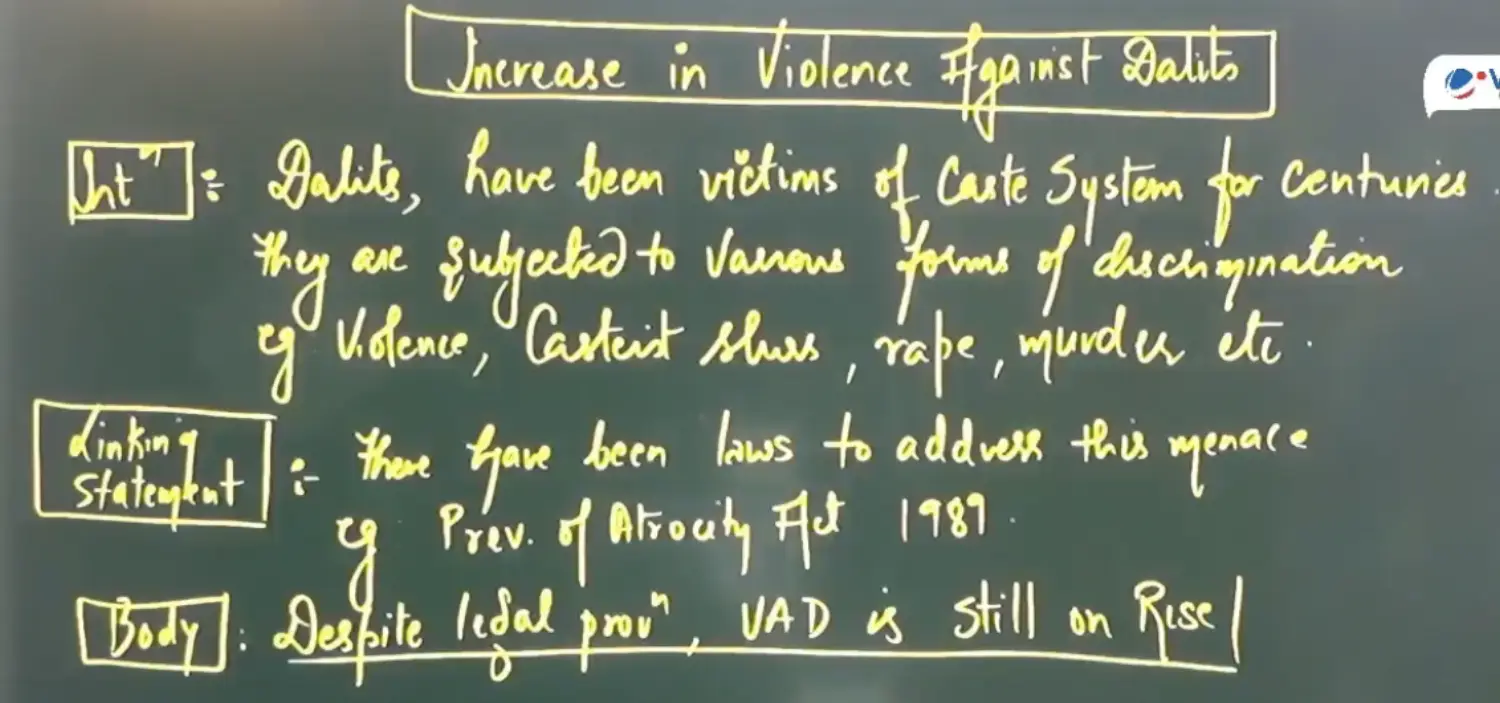 Increase in Violence Against Dalits
Intⁿ :- Dalits, have been victims of Caste System for centuries.
they are subjected to various forms of discrimination
eg Violence, Casteist slurs, rape, murder etc.
Linking Statement :- there have been laws to address this menace
eg Prev. of Atrocity Act 1989.
Body : Despite legal provⁿ, VAD is still on Rise